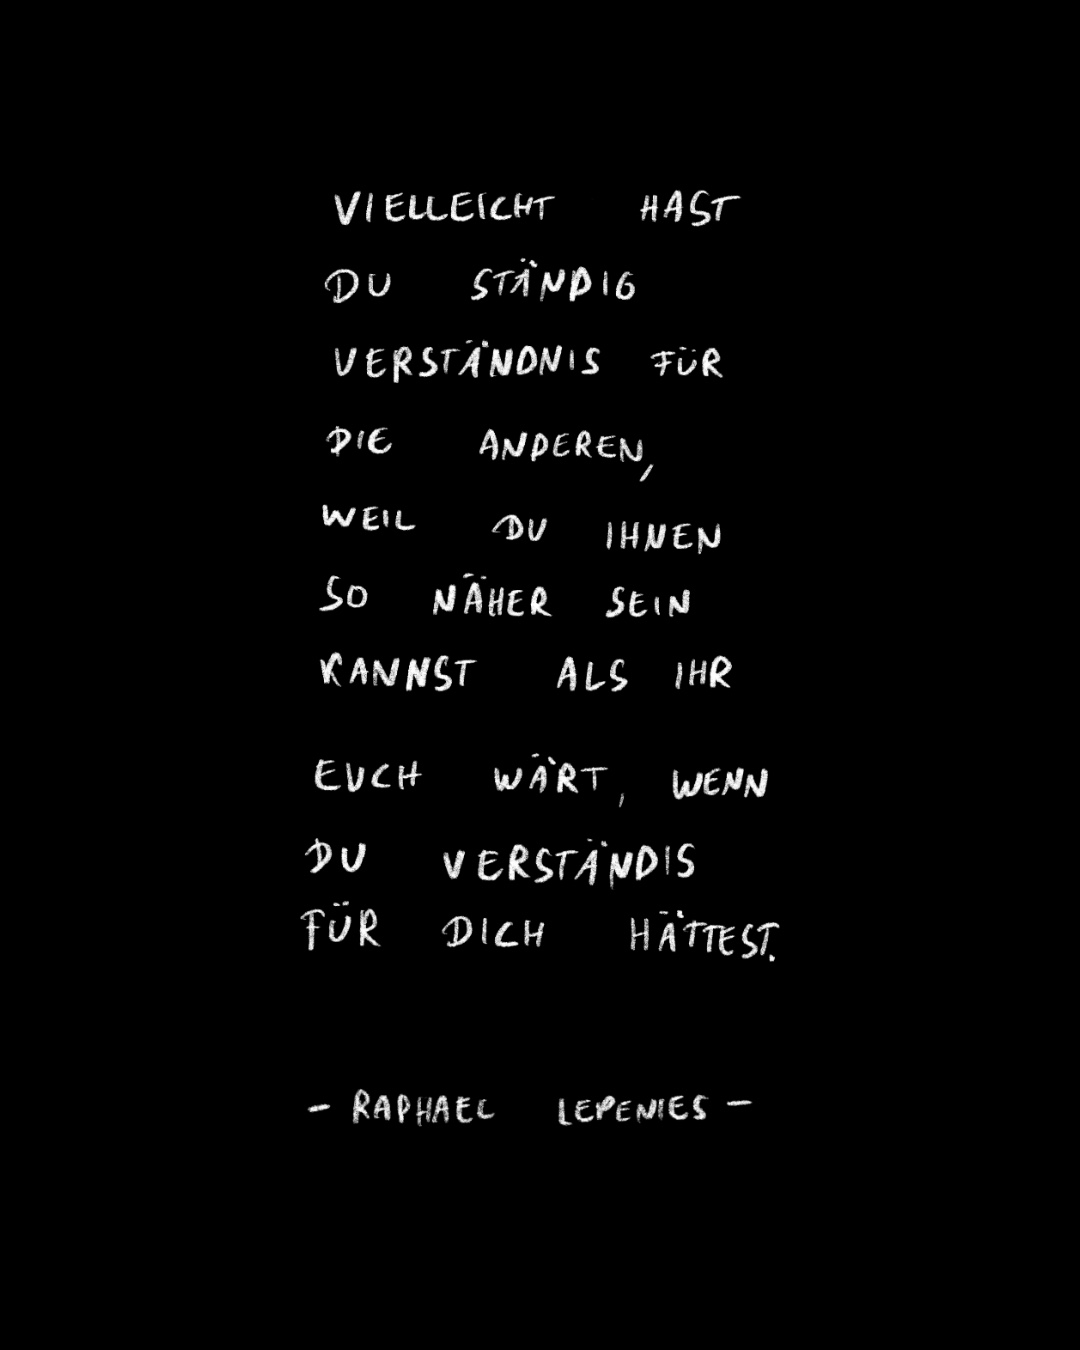 VIELLEICHT HAST
DU STÄNDIG
VERSTÄNDNIS FÜR
DIE ANDEREN,
WEIL DU IHNEN
SO NÄHER SEIN
KANNST ALS IHR
EUCH WÄRT, WENN
DU VERSTÄNDIS
FÜR DICH HÄTTEST.
- RAPHAEL LEPENIES -